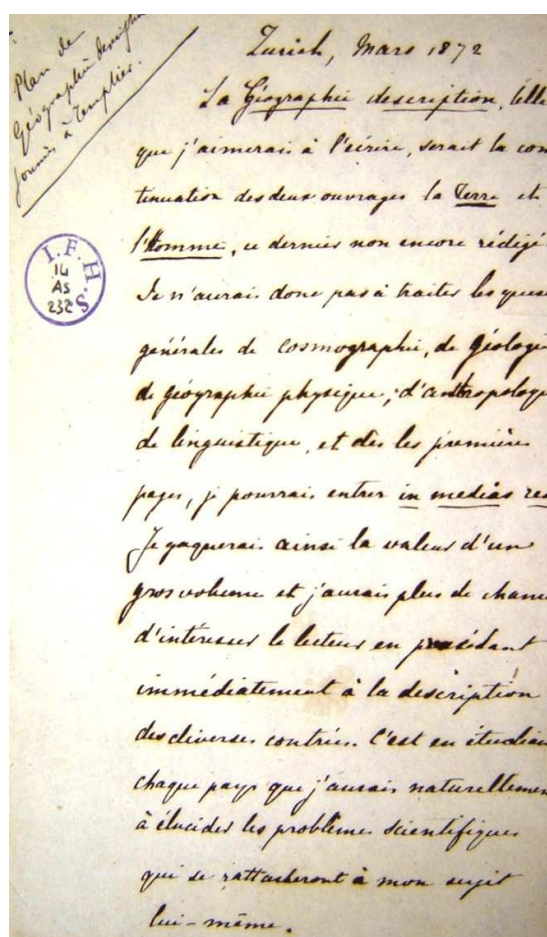 Plan de
Géographie descriptive
fournis à Templier.
I.F.H.S.
14
AS
232
Zurich, Mars 1872
La Géographie description, telle
que j'aimerais à l'écrire, serait la con
tinuation des deux ouvrages la Terre et
l'Homme, ce dernier non encore rédigé
Je n'aurais donc pas à traiter les ques
générales de cosmographie, de géologie
de géographie physique, d'anthropologie
de linguistique, et dès les premières
pages, je pourrais entrer in medias res
Je gagnerais ainsi la valeur d'un
gros volume et j'aurais plus de chance
d'intéresser le lecteur en procédant
immédiatement à la description
des diverses contrées. C'est en étudian
chaque pays que j'aurais naturellemen
à élucider les problèmes scientifiques
qui se rattacheront à mon sujet
lui-même.